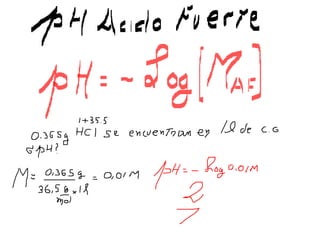 pH Acido Fuerte
pH = - Log [M AF]
1+35.5
0.365g HCl se encuentran en 1l de
¿pH?
M = 0,365 g / 36,5 g/mol × 1l = 0,01M
pH = - Log 0.01M
2